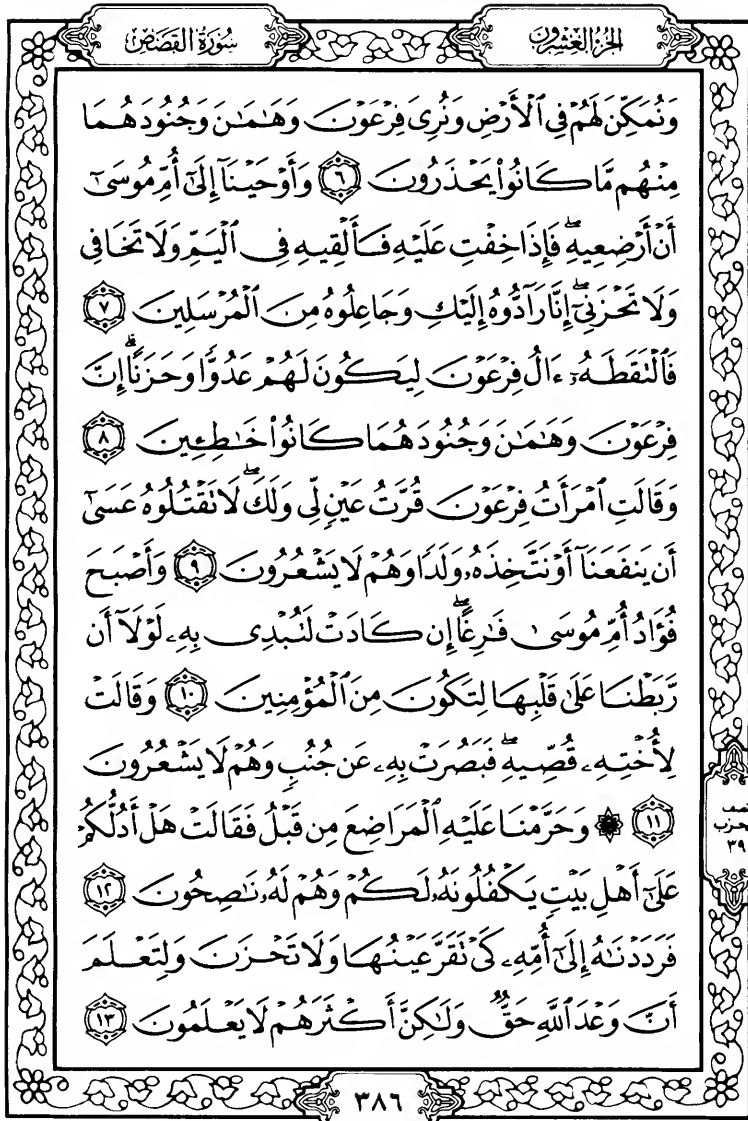 الجزء العشرون
سورة القصص
وَنُمَكِّنَ لَهُمْ فِي ٱلْأَرْضِ وَنُرِىَ فِرْعَوْنَ وَهَٰمَٰنَ وَجُنُودَهُمَا
مِنْهُم مَّا كَانُوا۟ يَحْذَرُونَ ٦ وَأَوْحَيْنَآ إِلَىٰٓ أُمِّ مُوسَىٰٓ
أَنْ أَرْضِعِيهِ ۖ فَإِذَا خِفْتِ عَلَيْهِ فَأَلْقِيهِ فِى ٱلْيَمِّ وَلَا تَخَافِى
وَلَا تَحْزَنِىٓ ۖ إِنَّا رَآدُّوهُ إِلَيْكِ وَجَاعِلُوهُ مِنَ ٱلْمُرْسَلِينَ ٧
فَٱلْتَقَطَهُۥٓ ءَالُ فِرْعَوْنَ لِيَكُونَ لَهُمْ عَدُوًّا وَحَزَنًا ۗ إِنَّ
فِرْعَوْنَ وَهَٰمَٰنَ وَجُنُودَهُمَا كَانُوا۟ خَٰطِـِٔينَ ٨
وَقَالَتِ ٱمْرَأَتُ فِرْعَوْنَ قُرَّتُ عَيْنٍ لِّى وَلَكَ ۖ لَا تَقْتُلُوهُ عَسَىٰٓ
أَن يَنفَعَنَآ أَوْ نَتَّخِذَهُۥ وَلَدًا وَهُمْ لَا يَشْعُرُونَ ٩ وَأَصْبَحَ
فُؤَادُ أُمِّ مُوسَىٰ فَٰرِغًا ۖ إِن كَادَتْ لَتُبْدِى بِهِۦ لَوْلَآ أَن
رَّبَطْنَا عَلَىٰ قَلْبِهَا لِتَكُونَ مِنَ ٱلْمُؤْمِنِينَ ١٠ وَقَالَتْ
لِأُخْتِهِۦ قُصِّيهِ ۖ فَبَصُرَتْ بِهِۦ عَن جُنُبٍ وَهُمْ لَا يَشْعُرُونَ
١١ ۞ وَحَرَّمْنَا عَلَيْهِ ٱلْمَرَاضِعَ مِن قَبْلُ فَقَالَتْ هَلْ أَدُلُّكُمْ
عَلَىٰٓ أَهْلِ بَيْتٍ يَكْفُلُونَهُۥ لَكُمْ وَهُمْ لَهُۥ نَٰصِحُونَ ١٢
فَرَدَدْنَٰهُ إِلَىٰٓ أُمِّهِۦ كَىْ تَقَرَّ عَيْنُهَا وَلَا تَحْزَنَ وَلِتَعْلَمَ
أَنَّ وَعْدَ ٱللَّهِ حَقٌّ وَلَٰكِنَّ أَكْثَرَهُمْ لَا يَعْلَمُونَ ١٣
٣٩
٣٨٦